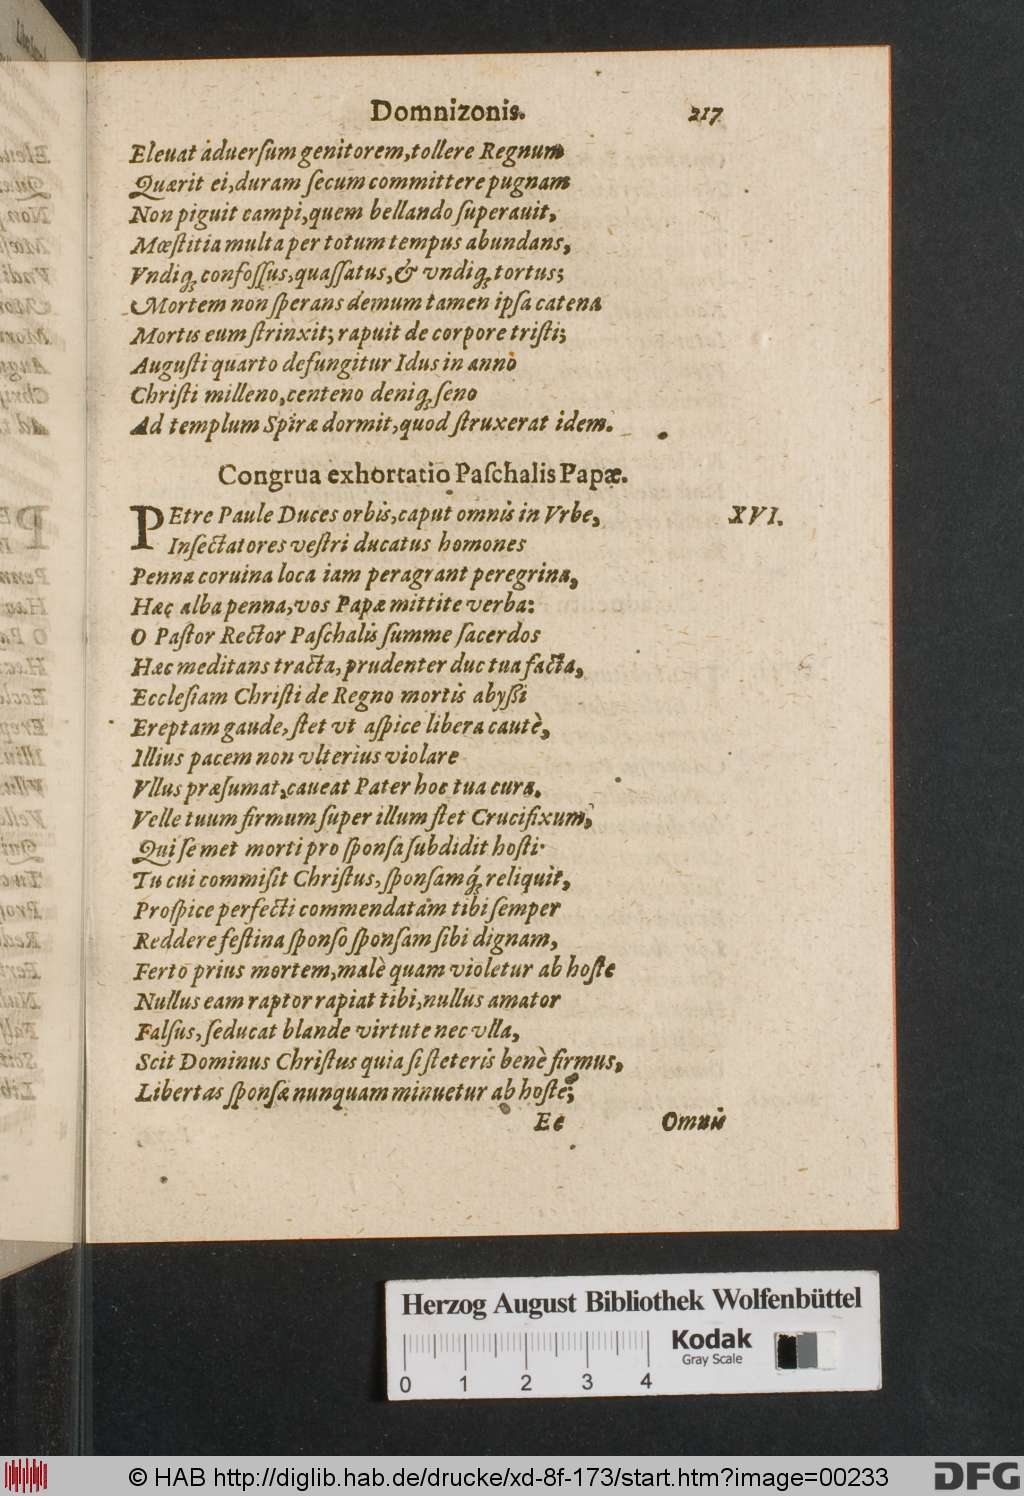 Domnizonis. 217
Eleuat aduerſum genitorem, tollere Regnum
Quærit ei, duram ſecum committere pugnam
Non piguit campi, quem bellando ſuperauit,
Mœſtitia multa per totum tempus abundans,
Vndiq; confoſſus, quaſſatus, & vndiq; tortus;
Mortem non ſperans demum tamen ipſa catena
Mortis eum ſtrinxit; rapuit de corpore triſti;
Auguſti quarto defungitur Idus in anno
Chriſti milleno, centeno deniq; ſeno
Ad templum Spiræ dormit, quod ſtruxerat idem.
Congrua exhortatio Paſchalis Papæ.
PEtre Paule Duces orbis, caput omnis in Vrbe, XVI.
Inſectatores veſtri ducatus homones
Penna coruina loca iam peragrant peregrina,
Hac alba penna, vos Papæ mittite verba:
O Paſtor Rector Paſchalis ſumme ſacerdos
Hæc meditans tracta, prudenter duc tua facta,
Eccleſiam Chriſti de Regno mortis abyſſi
Ereptam gaude, ſtet vt aſpice libera cautè,
Illius pacem non vlterius violare
Vllus præſumat, caueat Pater hoc tua cura.
Velle tuum firmum ſuper illum ſtet Crucifixum,
Qui ſe met morti pro ſponſa ſubdidit hoſti.
Tu cui commiſit Chriſtus, ſponſamq́; reliquit,
Proſpice perfecti commendatam tibi ſemper
Reddere feſtina ſponſo ſponſam ſibi dignam,
Ferto prius mortem, malè quam violetur ab hoſte
Nullus eam raptor rapiat tibi, nullus amator
Falſus, ſeducat blande virtute nec vlla,
Scit Dominus Chriſtus quia ſi ſteteris benè firmus,
Libertas ſponſæ nunquam minuetur ab hoſte;
Ee Omnis
Herzog August Bibliothek Wolfenbüttel
Kodak
Gray Scale
0 1 2 3 4
© HAB http://diglib.hab.de/drucke/xd-8f-173/start.htm?image=00233
DFG